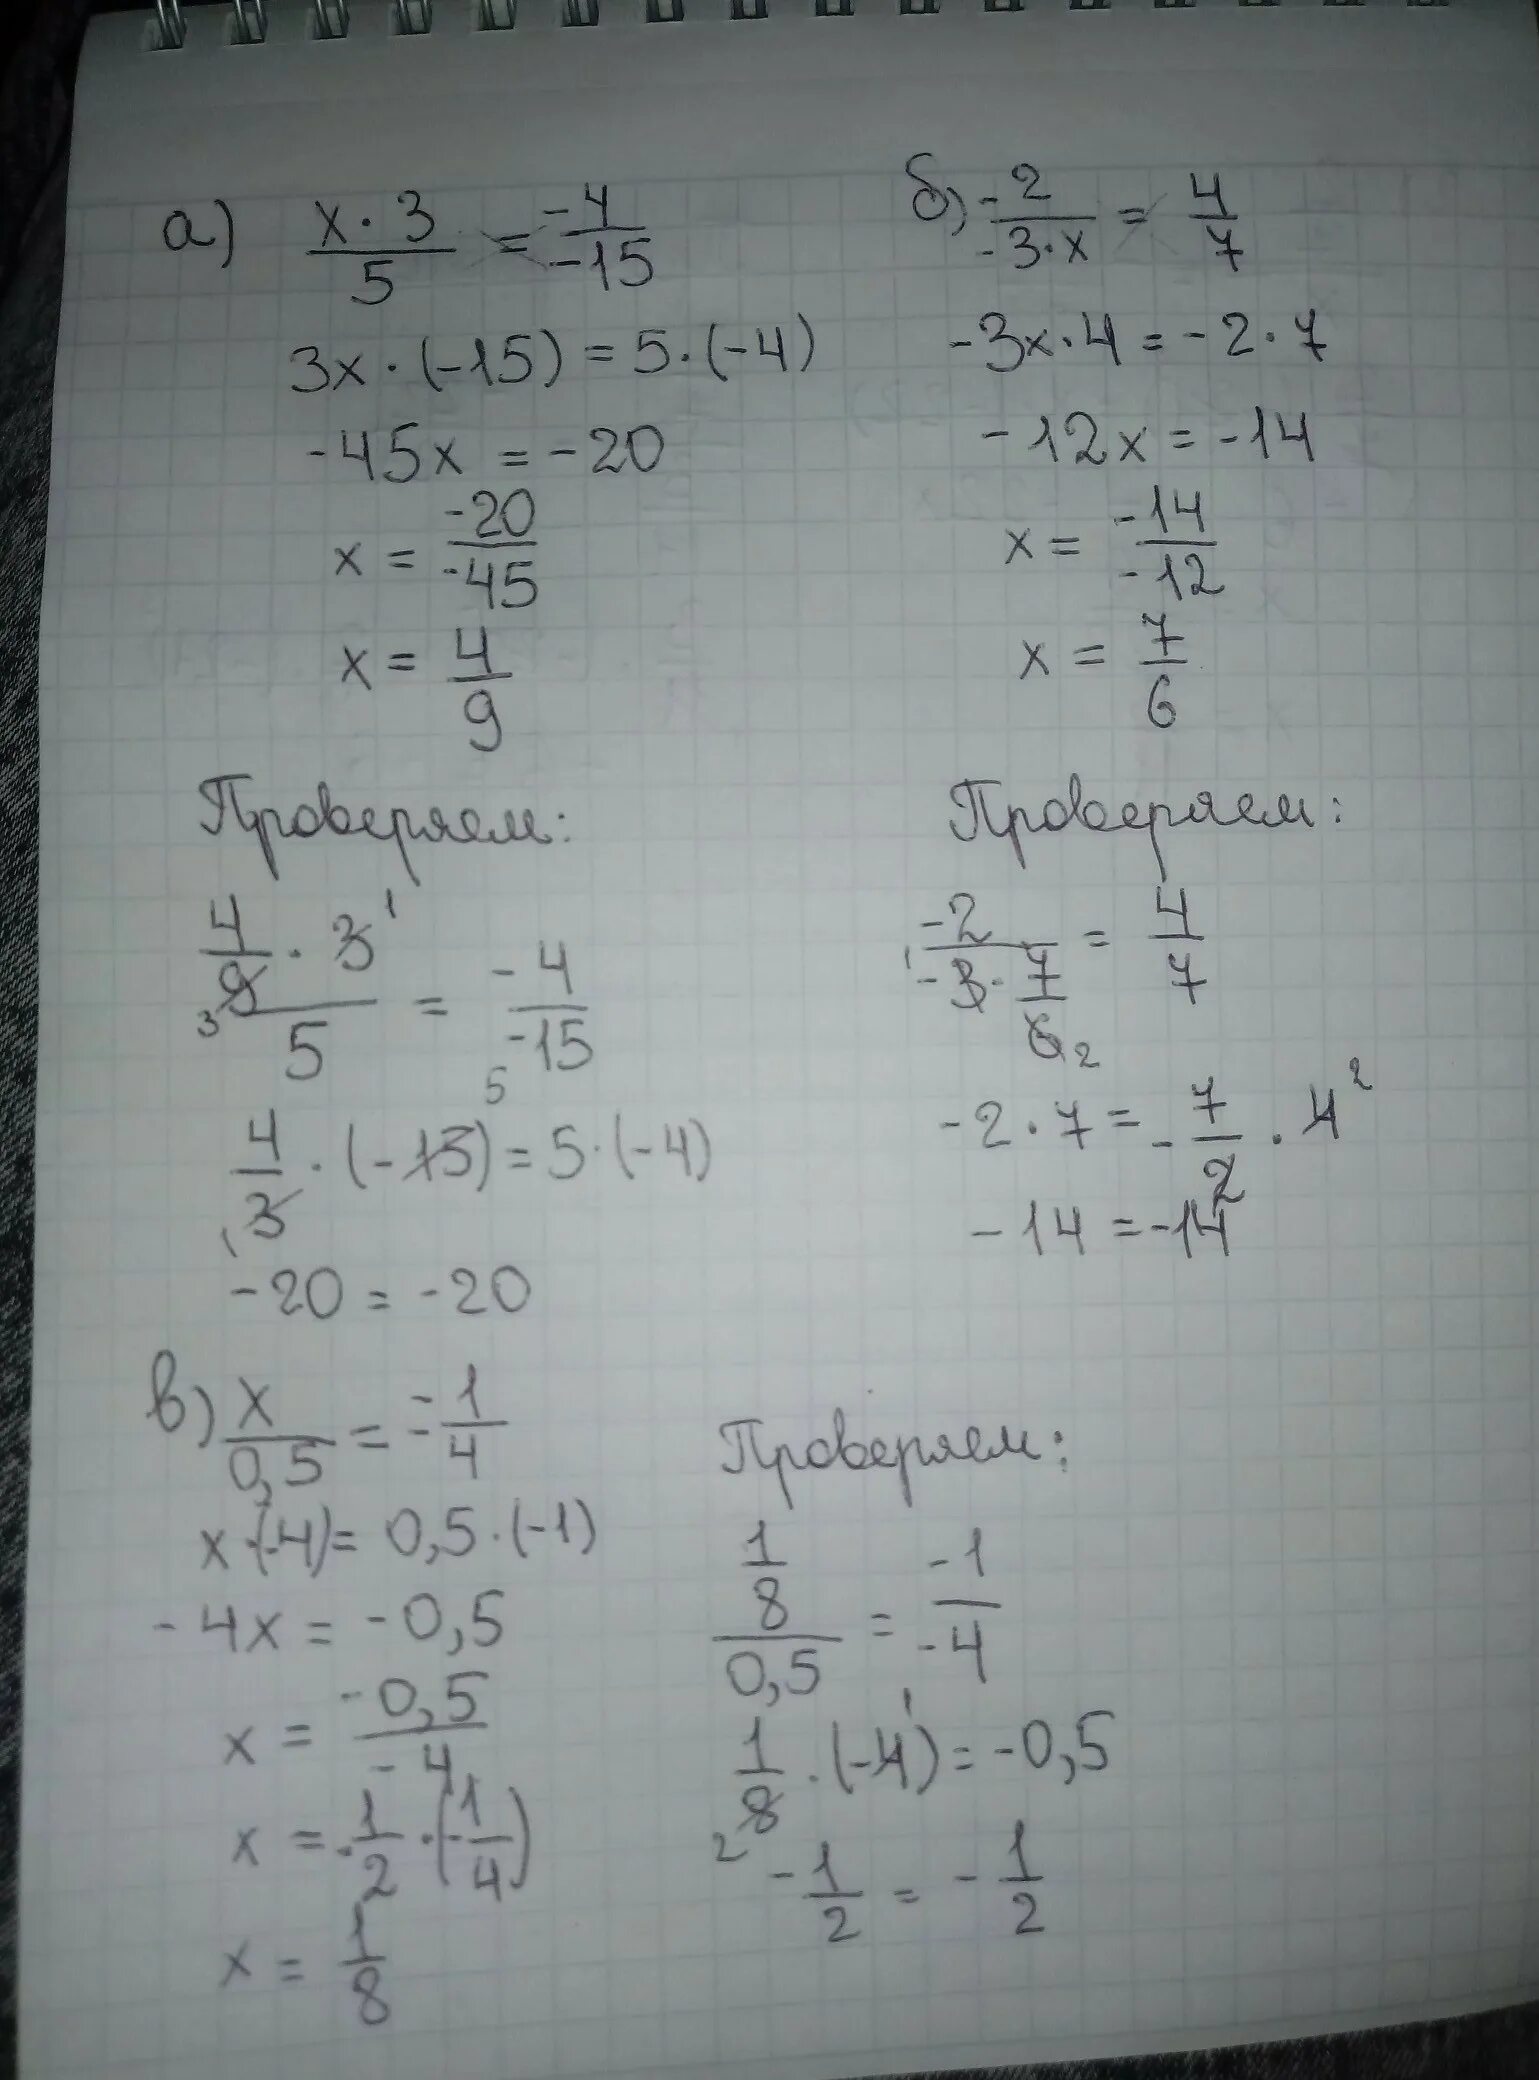 а) x · 3 / 5 = -4 / -15
3x · (-15) = 5 · (-4)
-45x = -20
x = -20 / -45
x = 4 / 9
Проверяем:
4 / 9 · 3 1
3
5 = -4 / -15
5
4 / 3 · (-15) = 5 · (-4)
1
-20 = -20
б) -2 / -3·x = 4 / 7
-3x · 4 = -2 · 7
-12x = -14
x = -14 / -12
x = 7 / 6
Проверяем:
-2 / -3 · 7 / 6 = 4 / 7
1
2
-2 · 7 = -7 / 2 · 4 2
-14 = -14
в) x / 0,5 = -1 / -4
x·(-4) = 0,5 · (-1)
-4x = -0,5
x = -0,5 / -4
x = -1 / 2 · (-1 / 4)
x = 1 / 8
Проверяем:
1 / 8 / 0,5 = -1 / -4
1 / 8 · (-4 1) = -0,5
2
-1 / 2 = -1 / 2